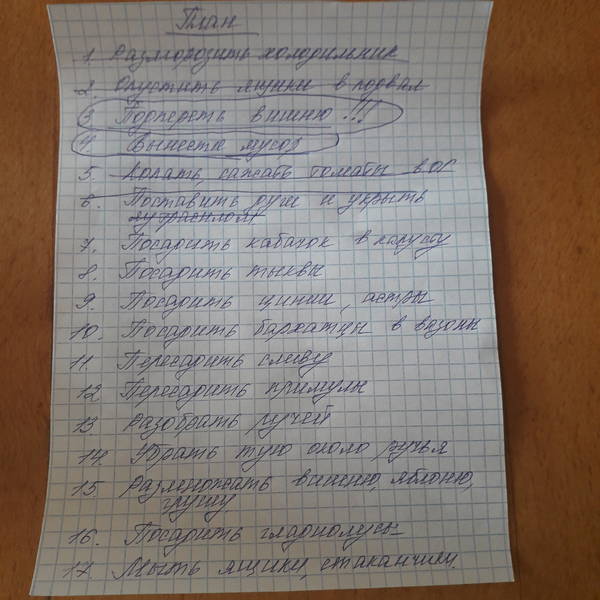 План
1. Разморозить холодильник
2. Опустить ящики в подвал
3 Подпереть вишню !!!
4. Вынести мусор
5. Копать, сажать томаты в ОГ
6. Поставить душ и укрыть
7. Посадить кабачок в
8. Посадить тыквы
9. Посадить цинии, астры
10. Посадить бархатцы в вазоны
11. Пересадить сливу
12 Пересадить примулы
13. Разобрать ручей
14. Убрать тую около ручья
15. Размножать вишню, яблоню,
грушу
16. Посадить гладиолусы
17. Мыть ящики, стаканчики.